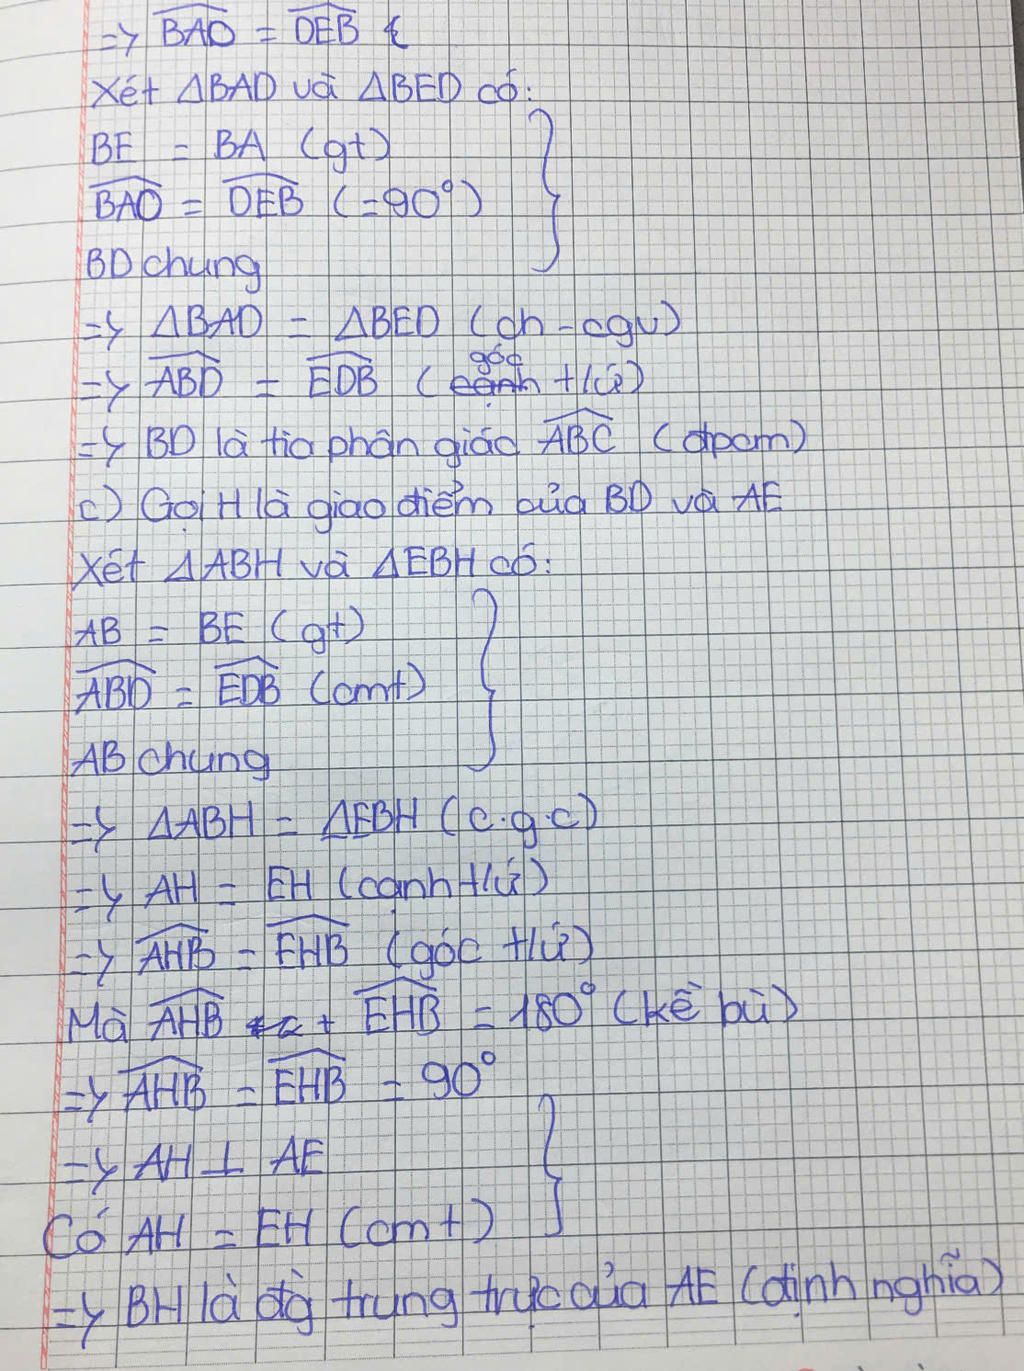 => BAD = DEB
Xét ΔBAD và ΔBED có:
BE = BA (gt)
BAD = DEB (=90°)
BD chung
=> ΔBAD = ΔBED (ch-cgv)
góc
=> ABD = EDB (cạnh t/ứ)
=> BD là tia phân giác ABC (đpcm)
c) Gọi H là giao điểm của BD và AE
Xét ΔABH và ΔEBH có:
AB = BE (gt)
ABD = EDB (cmt)
AB chung
=> ΔABH = ΔEBH (c.g.c)
=> AH = EH (cạnh t/ứ)
=> AHB = EHB (góc t/ứ)
Mà AHB + EHB = 180° (kề bù)
=> AHB = EHB = 90°
=> AH ⊥ AE
Có AH = EH (cmt)
=> BH là đg trung trực của AE (định nghĩa)